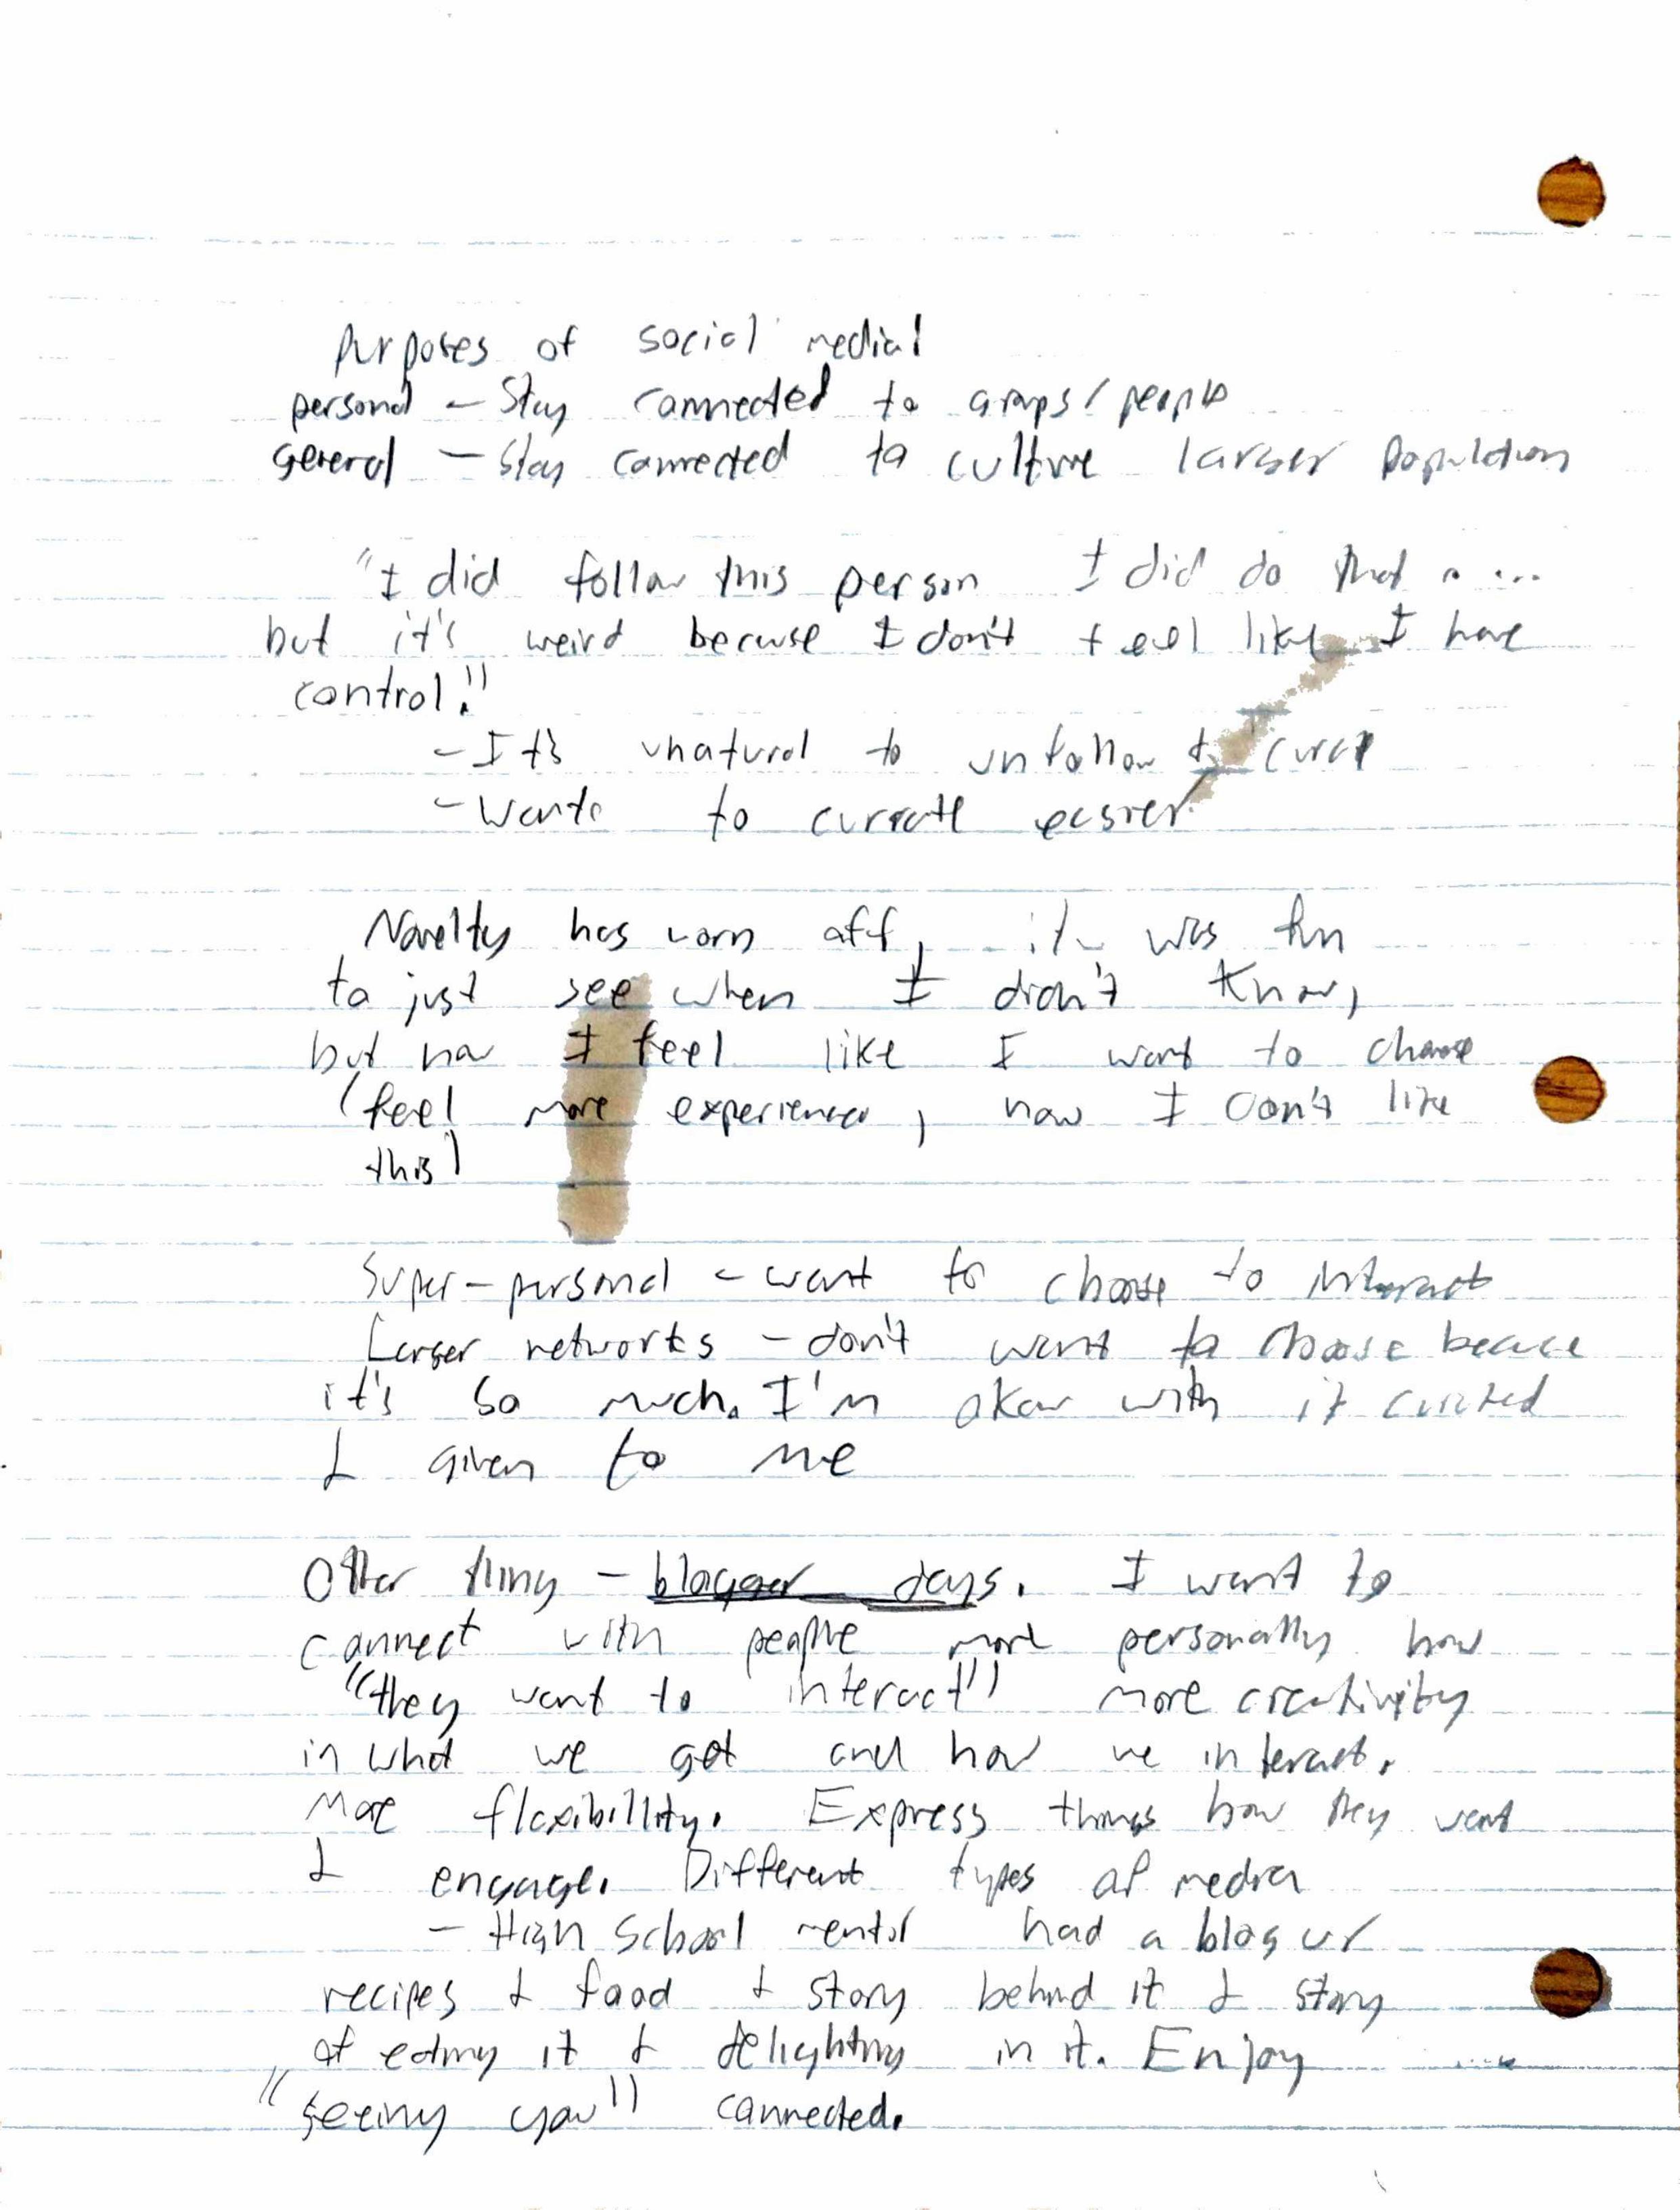 Purposes of social media!
personal - Stay connected to groups / people
General - Stay connected to culture larger population
"I did follow this person I did do that ...
but it's weird because I don't feel like I have
control."
- It's unatural to unfollow &
- Wants to currate easier
Novelty has worn off, it was fun
to just see when I didn't know,
but now I feel like I want to choose
(feel more experienced, now I don't like
this)
Super-personal - want to choose to interact
Larger networks - don't want to choose because
it's so much. I'm okay with it curated
& given to me
Other thing - blogger days. I want to
connect with people more personally how
"they want to interact" more creativity
in what we get and how we interact.
More flexibillity. Express things how they want
& engage. Different types of media
- High School mentor had a blog w/
recipes & food & story behind it & story
of eating it & delighting in it. Enjoy
"seeing you" connected.